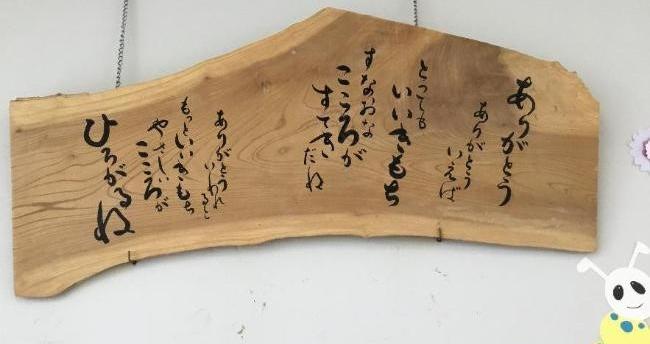 ありがとう
ありがとう
いえば
とっても
いいきもち
すなおな
こころが
すてきだね
ありがとうれ
いしわれると
もっといいきもち
やさしい
こころが
ひろがるね